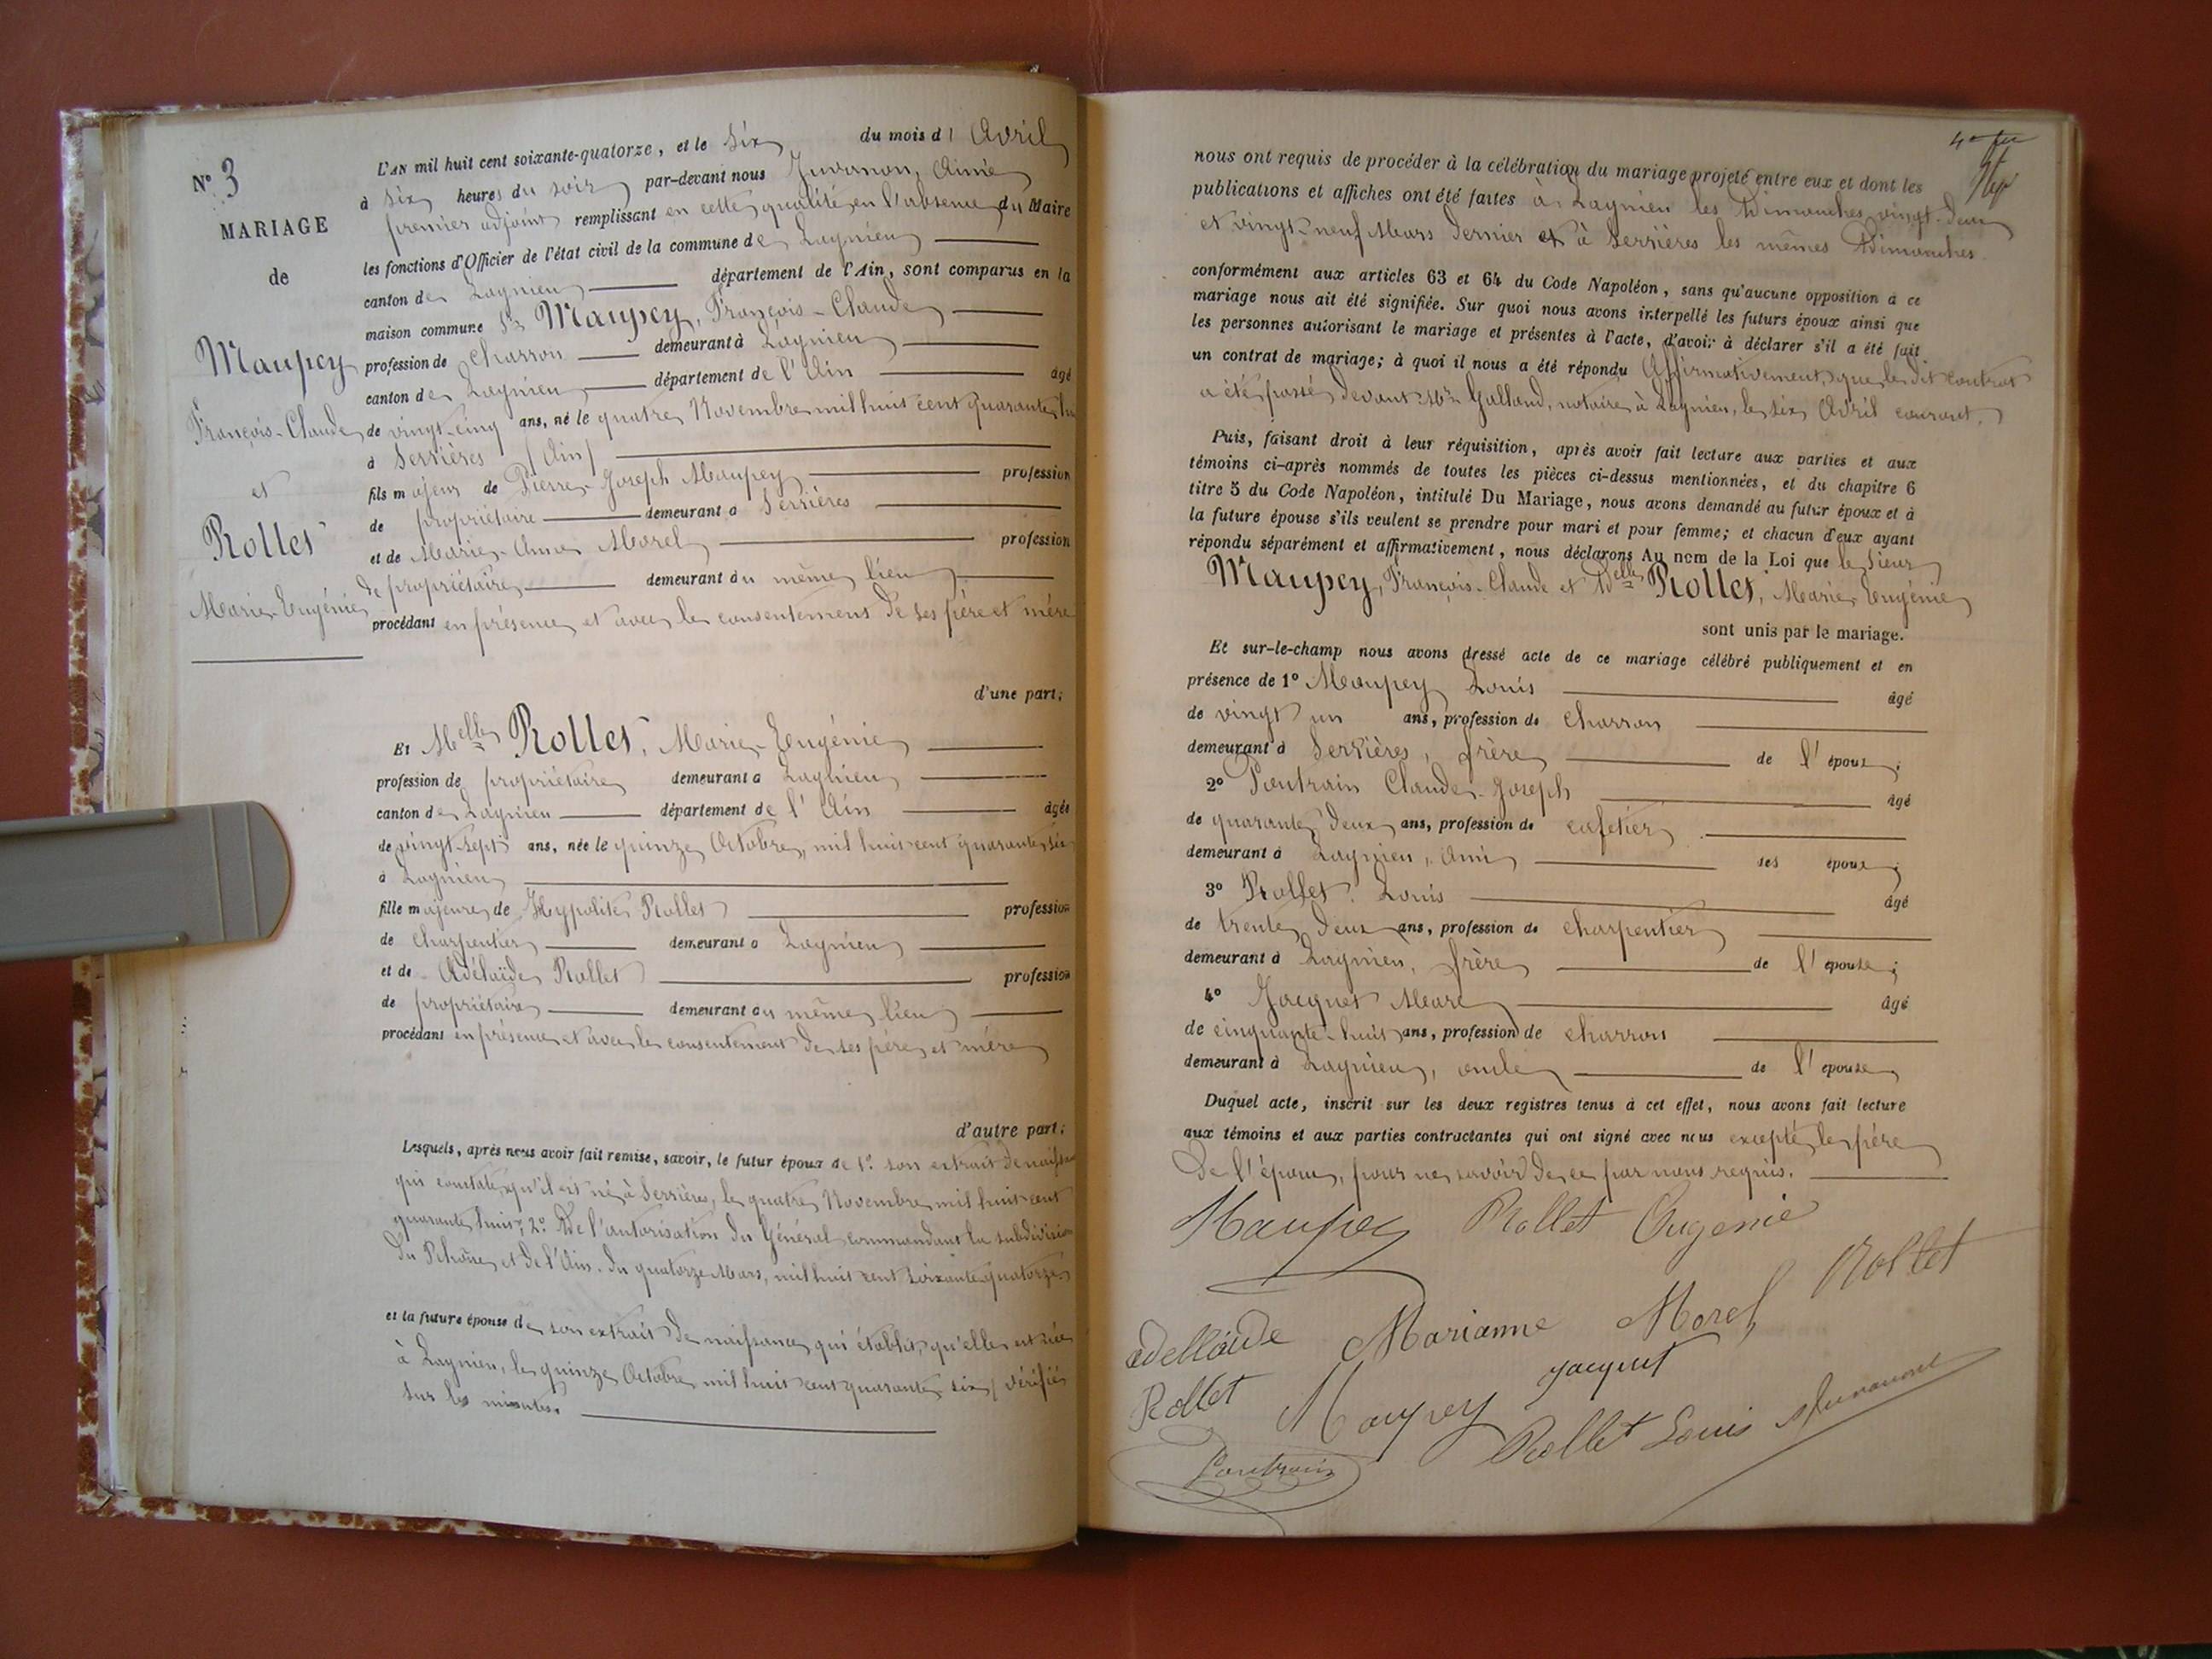 N° 3
MARIAGE
de
Maupey
François-Claude
et
Rollet
Marie-Eugénie
L'AN mil huit cent soixante-quatorze, et le Six du mois d' Avril
à Six heures du soir par-devant nous Juvanon, Aimé
premier adjoint remplissant en cette qualité, en l'absence du Maire
les fonctions d'Officier de l'état civil de la commune de Lagnieu
canton de Lagnieu département de l'Ain, sont comparus en la
maison commune Sr Maupey, François-Claude
profession de Charron demeurant à Lagnieu
canton de Lagnieu département de l'Ain âgé
de vingt-cinq ans, né le quatre Novembre mil huit cent quarante huit
à Serrières (Ain)
fils majeur de Pierre-Joseph Maupey profession
de propriétaire demeurant à Serrières
et de Marie-Anne Morel profession
de propriétaire demeurant au même lieu
procédant en présence et avec le consentement de ses père et mère
d'une part;
Et Melle Rollet, Marie-Eugénie
profession de propriétaire demeurant à Lagnieu
canton de Lagnieu département de l'Ain âgée
de vingt-sept ans, née le quinze Octobre, mil huit cent quarante six
à Lagnieu
fille majeure de Hypolite Rollet profession
de Charpentier demeurant à Lagnieu
et de Adélaïde Rollet profession
de propriétaire demeurant au même lieu
procédant en présence et avec le consentement de ses père et mère
d'autre part;
Lesquels, après nous avoir fait remise, savoir, le futur époux de 1° son extrait de naissance
qui constate qu'il est né à Serrières, le quatre Novembre mil huit cent
quarante huit; 2° De l'autorisation du Général commandant la subdivision
du Rhône et de l'Ain. du quatorze Mars, mil huit cent soixante quatorze
et la future épouse de son extrait de naissance qui établit qu'elle est née
à Lagnieu, le quinze Octobre mil huit cent quarante six, vérifiés
sur les minutes.
nous ont requis de procéder à la célébration du mariage projeté entre eux et dont les
publications et affiches ont été faites à Lagnieu les Dimanches vingt-deux
et vingt-neuf Mars dernier et à Serrières les mêmes Dimanches
conformément aux articles 63 et 64 du Code Napoléon, sans qu'aucune opposition à ce
mariage nous ait été signifiée. Sur quoi nous avons interpellé les futurs époux ainsi que
les personnes autorisant le mariage et présentes à l'acte, d'avoir à déclarer s'il a été fait
un contrat de mariage; à quoi il nous a été répondu Affirmativement, que le dit contrat
a été passé devant Me Galland, notaire à Lagnieu, le six Avril courant.
Puis, faisant droit à leur réquisition, après avoir fait lecture aux parties et aux
témoins ci-après nommés de toutes les pièces ci-dessus mentionnées, et du chapitre 6
titre 5 du Code Napoléon, intitulé Du Mariage, nous avons demandé au futur époux et à
la future épouse s'ils veulent se prendre pour mari et pour femme; et chacun d'eux ayant
répondu séparément et affirmativement, nous déclarons Au nom de la Loi que le Sieur
Maupey, François-Claude et Delle Rollet, Marie-Eugénie
sont unis par le mariage.
Et sur-le-champ nous avons dressé acte de ce mariage célébré publiquement et en
présence de 1° Maupey Louis âgé
de vingt un ans, profession de Charron
demeurant à Serrières, frère de l'époux;
2° Pontrain Claude-Joseph âgé
de quarante deux ans, profession de cafetier
demeurant à Lagnieu, Ami des époux;
3° Rollet Louis âgé
de trente deux ans, profession de charpentier
demeurant à Lagnieu, frère de l'épouse;
4° Jacquet Marc âgé
de cinquante-huit ans, profession de charron
demeurant à Lagnieu, oncle de l'épouse
Duquel acte, inscrit sur les deux registres tenus à cet effet, nous avons fait lecture
aux témoins et aux parties contractantes qui ont signé avec nous excepté le père
de l'époux, pour ne savoir de ce par nous requis.
Maupey Rollet Eugenie
Rollet
adellaide Marianne Morel
Rollet Maupey Jacquet
Rollet Louis Juvanon